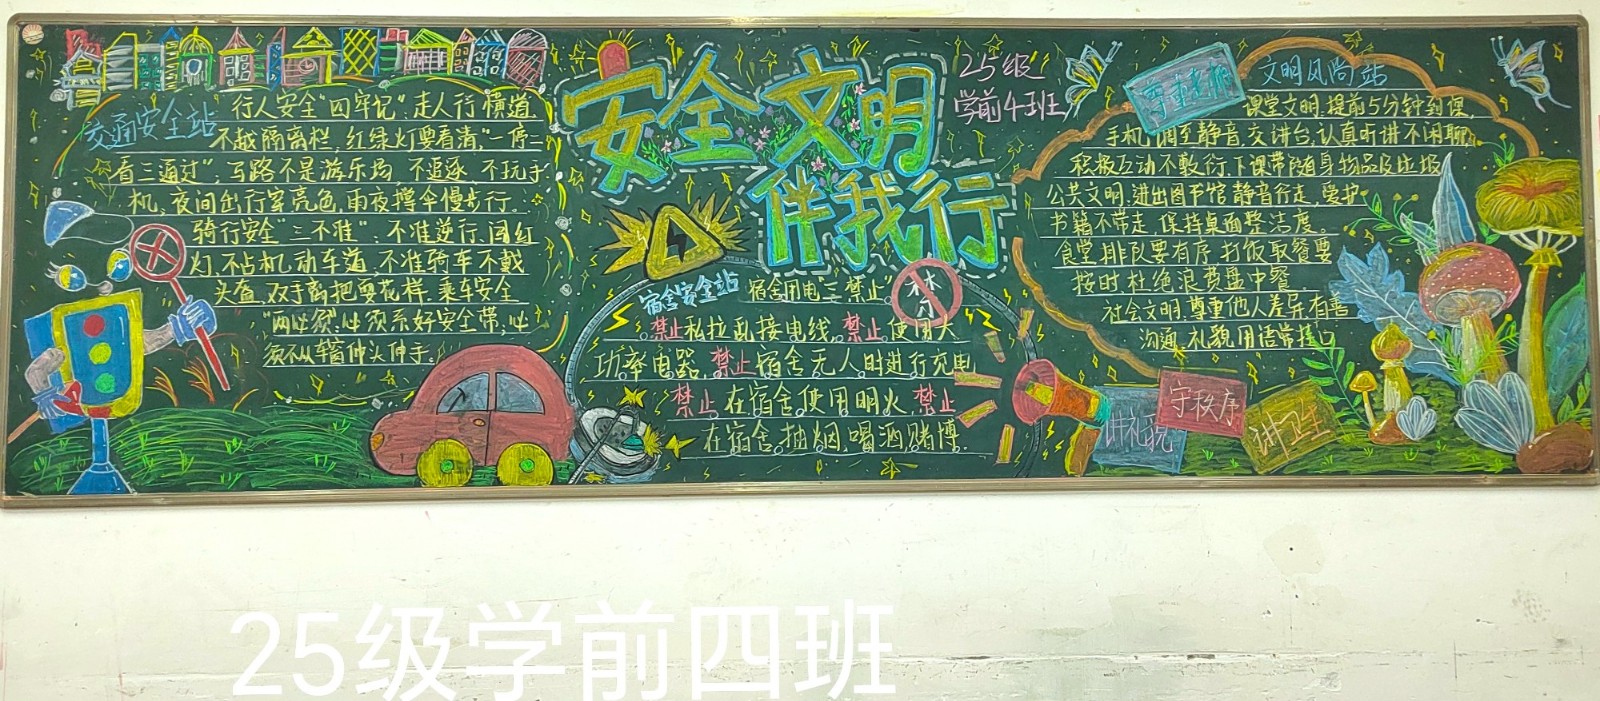 安全文明
伴我行
25级
学前4班
交通安全站
行人安全“四牢记”:走人行横道,
不越隔离栏,红绿灯要看清,“一停二
看三通过”;马路不是游乐场,不追逐,不玩手
机,夜间出行穿亮色,雨夜撑伞慢步行。
骑行安全“三不准”:不准逆行,闯红
灯,不占机动车道,不准骑车不戴
头盔,双手离把耍花样.乘车安全
“两必须”:必须系好安全带,必
须不从车窗伸头伸手。
宿舍安全站
宿舍用电“三禁止”
禁止
禁止私拉乱接电线,禁止使用大
功率电器,禁止宿舍无人时进行充电
禁止在宿舍使用明火,禁止
在宿舍抽烟,喝酒,赌博.
文明风尚站
课堂文明:提前5分钟到课,
手机调至静音,交讲台,认真听讲不闲聊,
积极互动不敷衍,下课带随身物品及垃圾
公共文明:进出图书馆静音行走,爱护
书籍不带走,保持桌面整洁度。
食堂排队要有序,打饭取餐要
按时,杜绝浪费盘中餐.
社会文明:尊重他人差异,有善
沟通,礼貌用语常挂口
讲礼貌
守秩序
讲卫生
25级学前四班